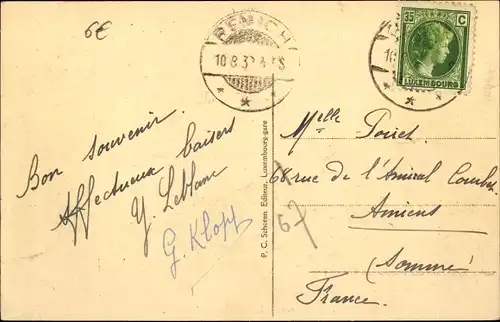 6€
REMICH
35 C
LUXEMBOURG
Bon souvenir.
Affectueux baisers
Y. Leblanc
G. Klopp
P. C. Schoren Editeur, Luxembourg-gare
67
Melle Poiret
68 rue de l'Amiral Courbet
Amiens
(Somme)
France.